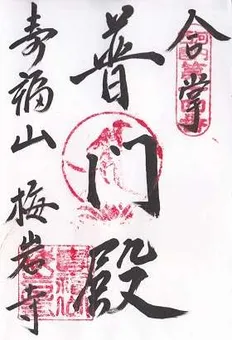 合掌
普门殿
寿福山 梅岩寺